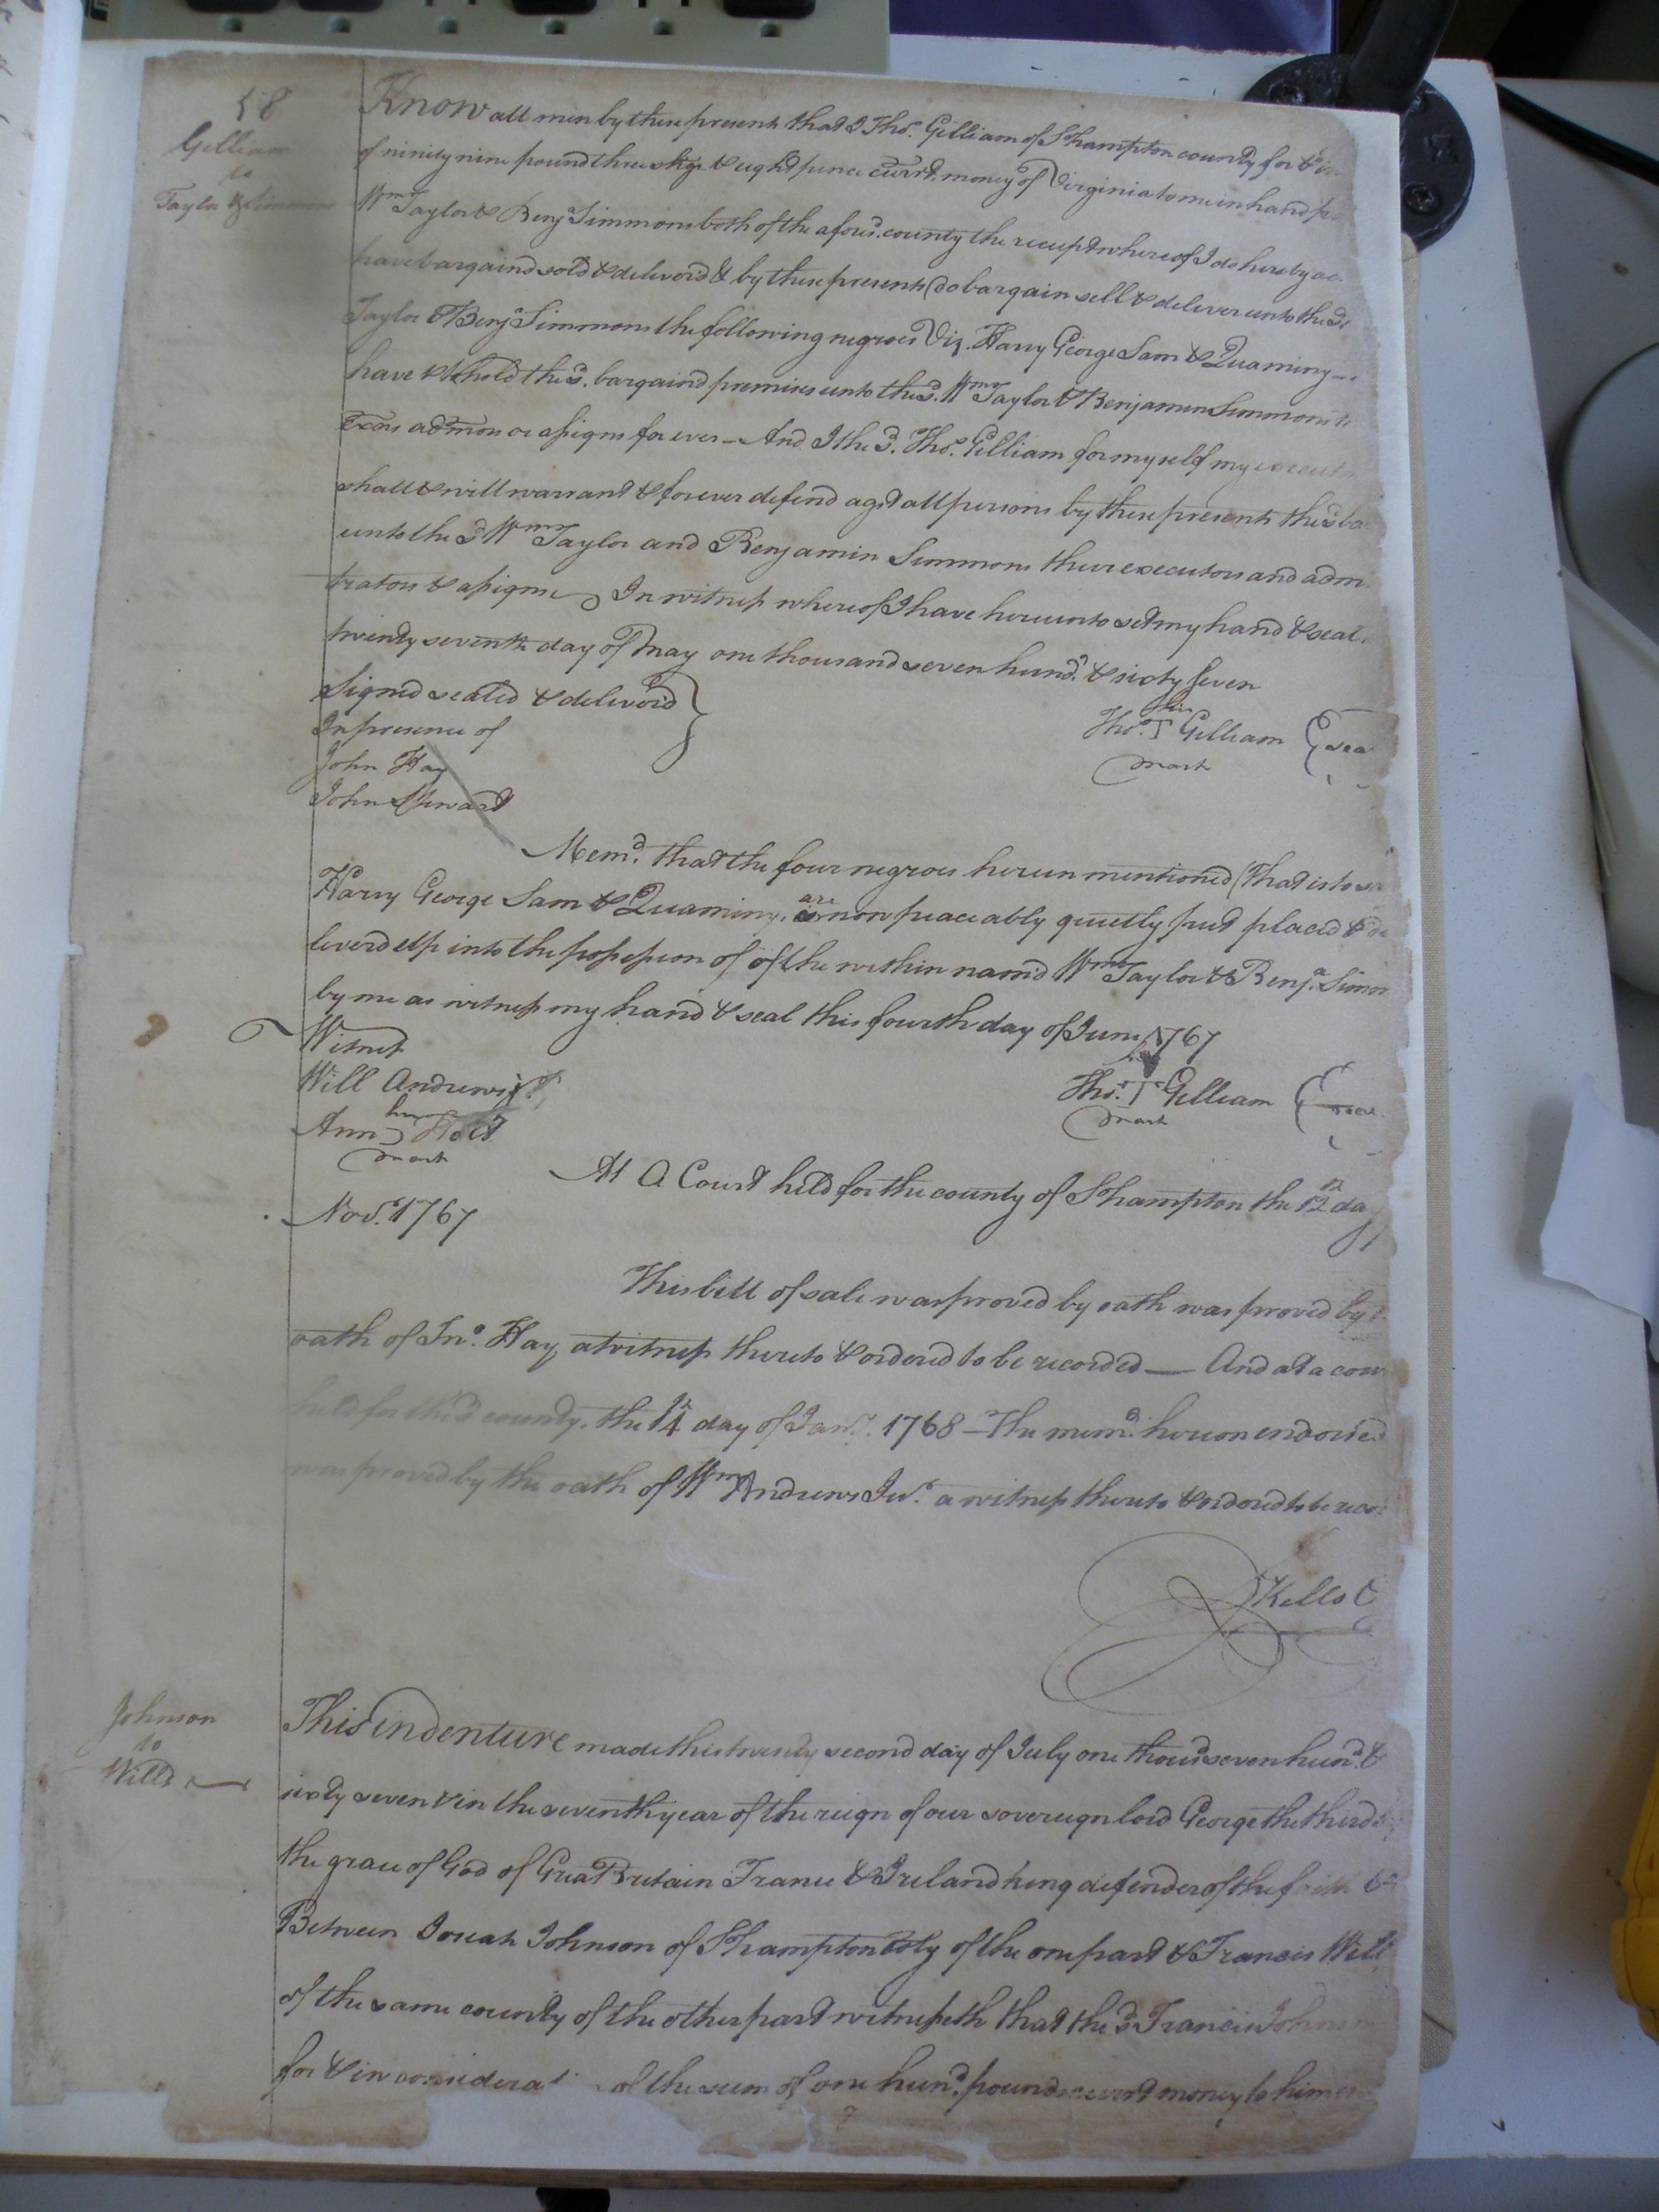 58
Gilliam
to
Taylor & Simmons
Know all men by these presents that I Thos. Gilliam of Shampton county for & in
of ninety nine pound three shgs & eight pence currt. money of Virginia to me in hand
Wm Taylor & Benja Simmons both of the afores'd. county the receipt whereof I do hereby ac
have bargaind sold & deliverd & by these presents do bargain sell & deliver unto the sd
Taylor & Benja Simmons the following negroes Viz. Harry George Sam & Quaminy
have & to hold the sd. bargaind premises unto the sd. Wm Taylor & Benjamin Simmons
Exors admons or assigns for ever - And I the sd. Thos. Gilliam for myself my execut
shall & will warrant & forever defend agst all persons by these presents the sd ba
unto the sd Wm Taylor and Benjamin Simmons there executors and admi
trators & assigns In witness whereof I have hereunto set my hand & seal
twenty seventh day of May one thousand seven hund. & sixty seven
Signed sealed & deliverd
In presence of
his
Thos. T Gilliam sea
mark
John Hay
John Stewart
Memd. that the four negroes herein mentioned (That is to
Harry George Sam & Quaminy, are now peaceably quietly put placed & de
liverd up into the possession of of the within named Wm Taylor & Benja. Simm
by me as witness my hand & seal this fourth day of June 1767
Witness
Will Andrews
Thos. T Gilliam
mark
Ann
mark
At A Court held for the county of Shampton the 12 day
Nov. 1767
This bill of sale was proved by oath was proved by
oath of Jno. Hay, a witness thereto & ordered to be recorded — And at a cour
held for the sd county, the 14 day of Jany. 1768 - The memd. hereon endorsed
was proved by the oath of Wm Andrews Junr. a witness thereto & ordored to be recor
Kello C
Johnson
to
Wills
This indenture made this twenty second day of July one thousd seven hund. &
sixty seven & in the seventh year of the reign of our sovereign lord George the third
the grace of God of Great Britain France & Ireland king defender of the faith &c
Between Josiah Johnson of Shampton coty of the one part & Francis Will
of the same county of the other part witnesseth that the sd Francis Johnson
for & in considerat of the sum of one hund. pounds currt money to him